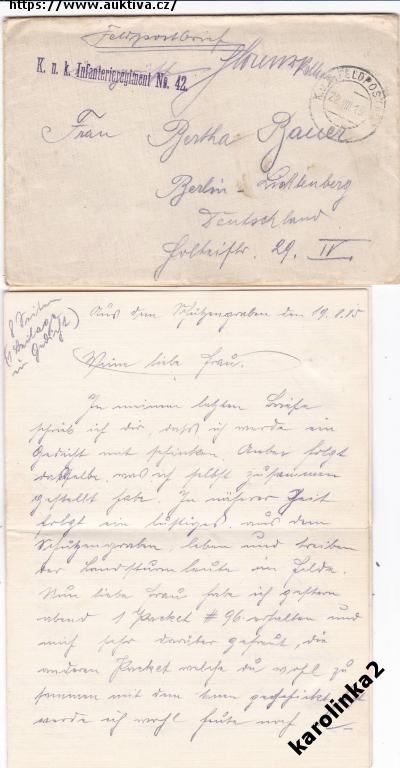 https://www.auktiva.cz/
Feldpostbrief
K. u. k. Infanterieregiment No. 42.
K.u.K. FELDPOST
Frau Bertha Bauer
Berlin-Lichtenberg
Deutschland.
Holteistr. 29. IV.
8 Seiten
(1 Beilage
in Gedicht)
Aus dem Schützengraben den 19.8.15
Meine liebe Frau.
In meinem letzten Briefe
schrieb ich dir, dass ich werde ein
Gedicht mit schicken. Anbei folgt
dasselbe, was ich selbst zusammen
gestellt habe. In näherer Zeit
folgt ein lustiges, aus dem
Schützengraben, leben und treiben
der Landsturmleute am Felde.
Nun liebe Frau habe ich gestern
abend 1 Packet # 96 erhalten und
mich sehr darüber gefreut, die
anderen Packet welche du wohl zu
sammen mit dem
werde ich wohl heute noch
karolinka2